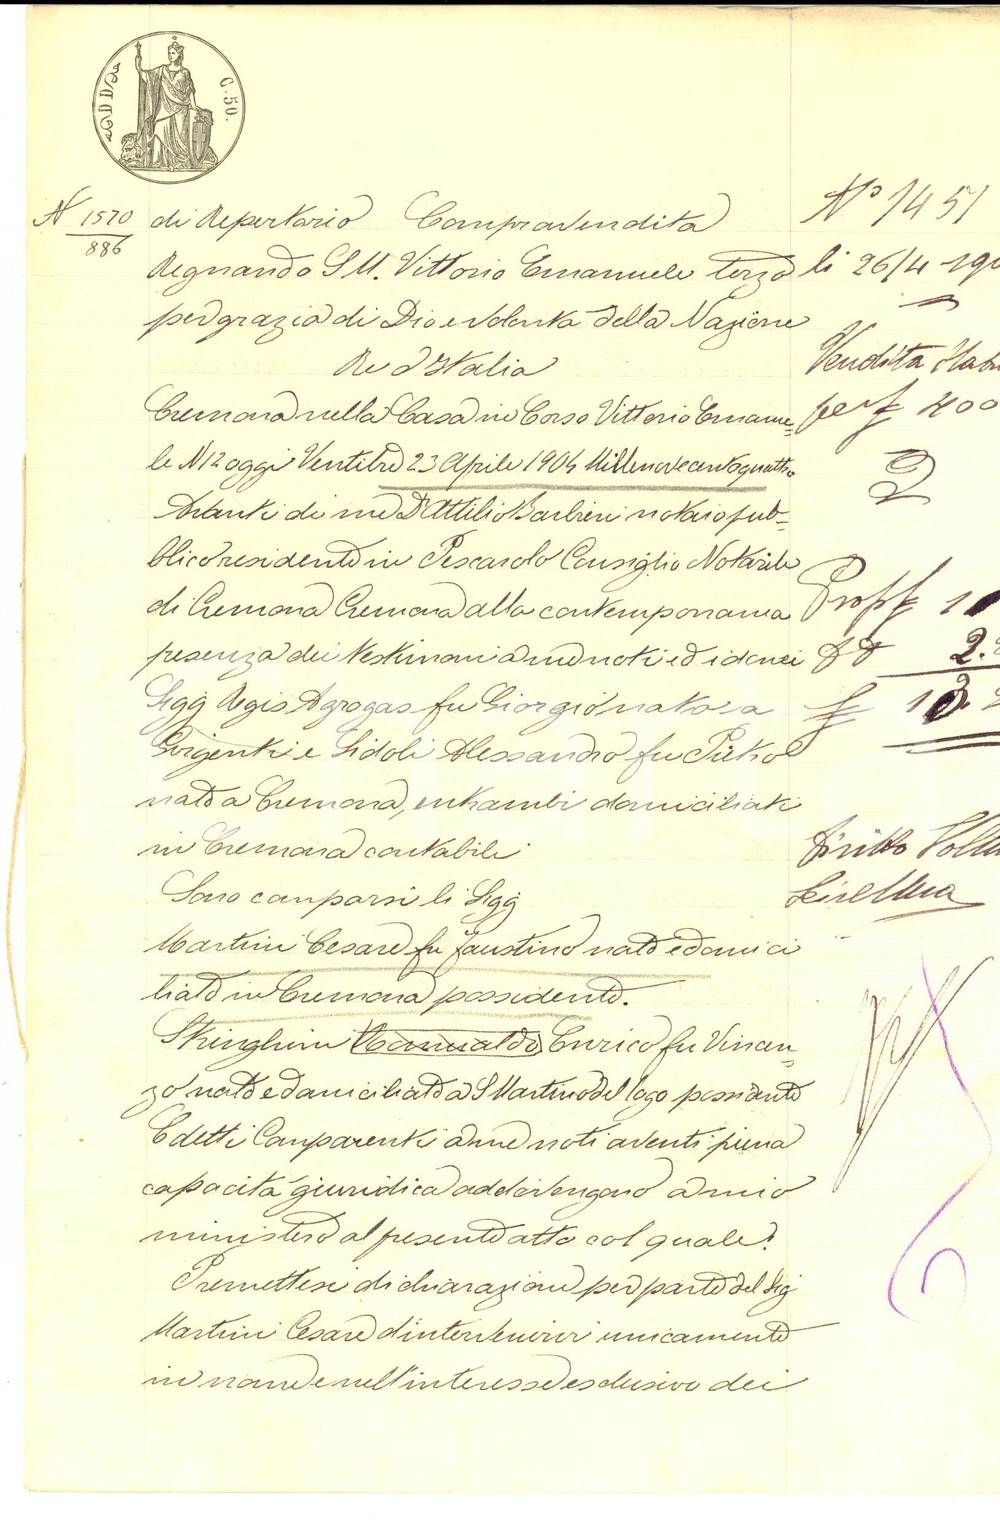 C. 50.
N 1570
886
di Repertorio Compravendita
Regnando S. M. Vittorio Emanuele terzo
per grazia di Dio e Volontà della Nazione
Re d'Italia
Cremona nella Casa in Corso Vittorio Emanue=
le N 12 oggi Ventitre 23 Aprile 1904 Millenovecentoquattro
Avanti di me Dr Attilio Barbieri notaio pub=
blico residente in Pescarolo Consiglio Notarile
di Cremona Cremona alla contemporanea
presenza dei testimoni a me noti ed idonei
Sigg Regis Agrogas fu Giorgio nato a
Girgenti e Sidoli Alessandro fu Pietro
nato a Cremona, entrambi domiciliati
in Cremona contabili
Sono comparsi li Sigg
Martini Cesare fu Faustino nato e domici
liato in Cremona possidente.
Stringhini Romualdo Enrico fu Vincen=
zo nato e domiciliato a S Martino del Lago possidente
E detti Comparenti a me noti aventi piena
capacità giuridica addivengono a mio
ministero al presente atto col quale:
Premettesi dichiarazione per parte del Sig
Martini Cesare d'intervenirvi unicamente
in nome e nell'interesse esclusivo dei
No 1451
li 26/4 190
Vendita
per £ 400
2
Prop £ 1
2.
£ 1
Diritto